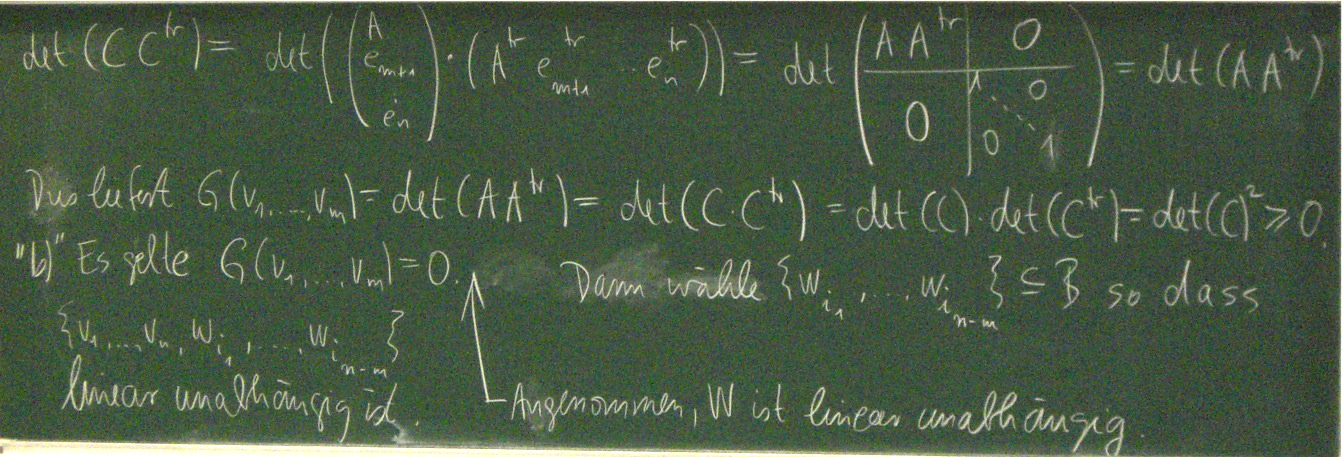 det (C C^tr) = det ( ( A e_{m+1} ⋮ e_n ) · ( A^tr e_{m+1}^tr ... e_n^tr ) ) = det ( A A^tr 0 0 1 0 ⋱ 0 1 ) = det (A A^tr)
Dies liefert G(v_1, ..., v_m) = det (A A^tr) = det (C · C^tr) = det (C) · det (C^tr) = det (C)^2 ≥ 0.
"b)" Es gelte G(v_1, ..., v_m) = 0. Dann wähle {w_{i_1}, ..., w_{i_{n-m}}} ⊆ B so dass
{v_1, ... v_n, w_{i_1}, ..., w_{i_{n-m}}}
linear unabhängig ist.
Angenommen, W ist linear unabhängig.